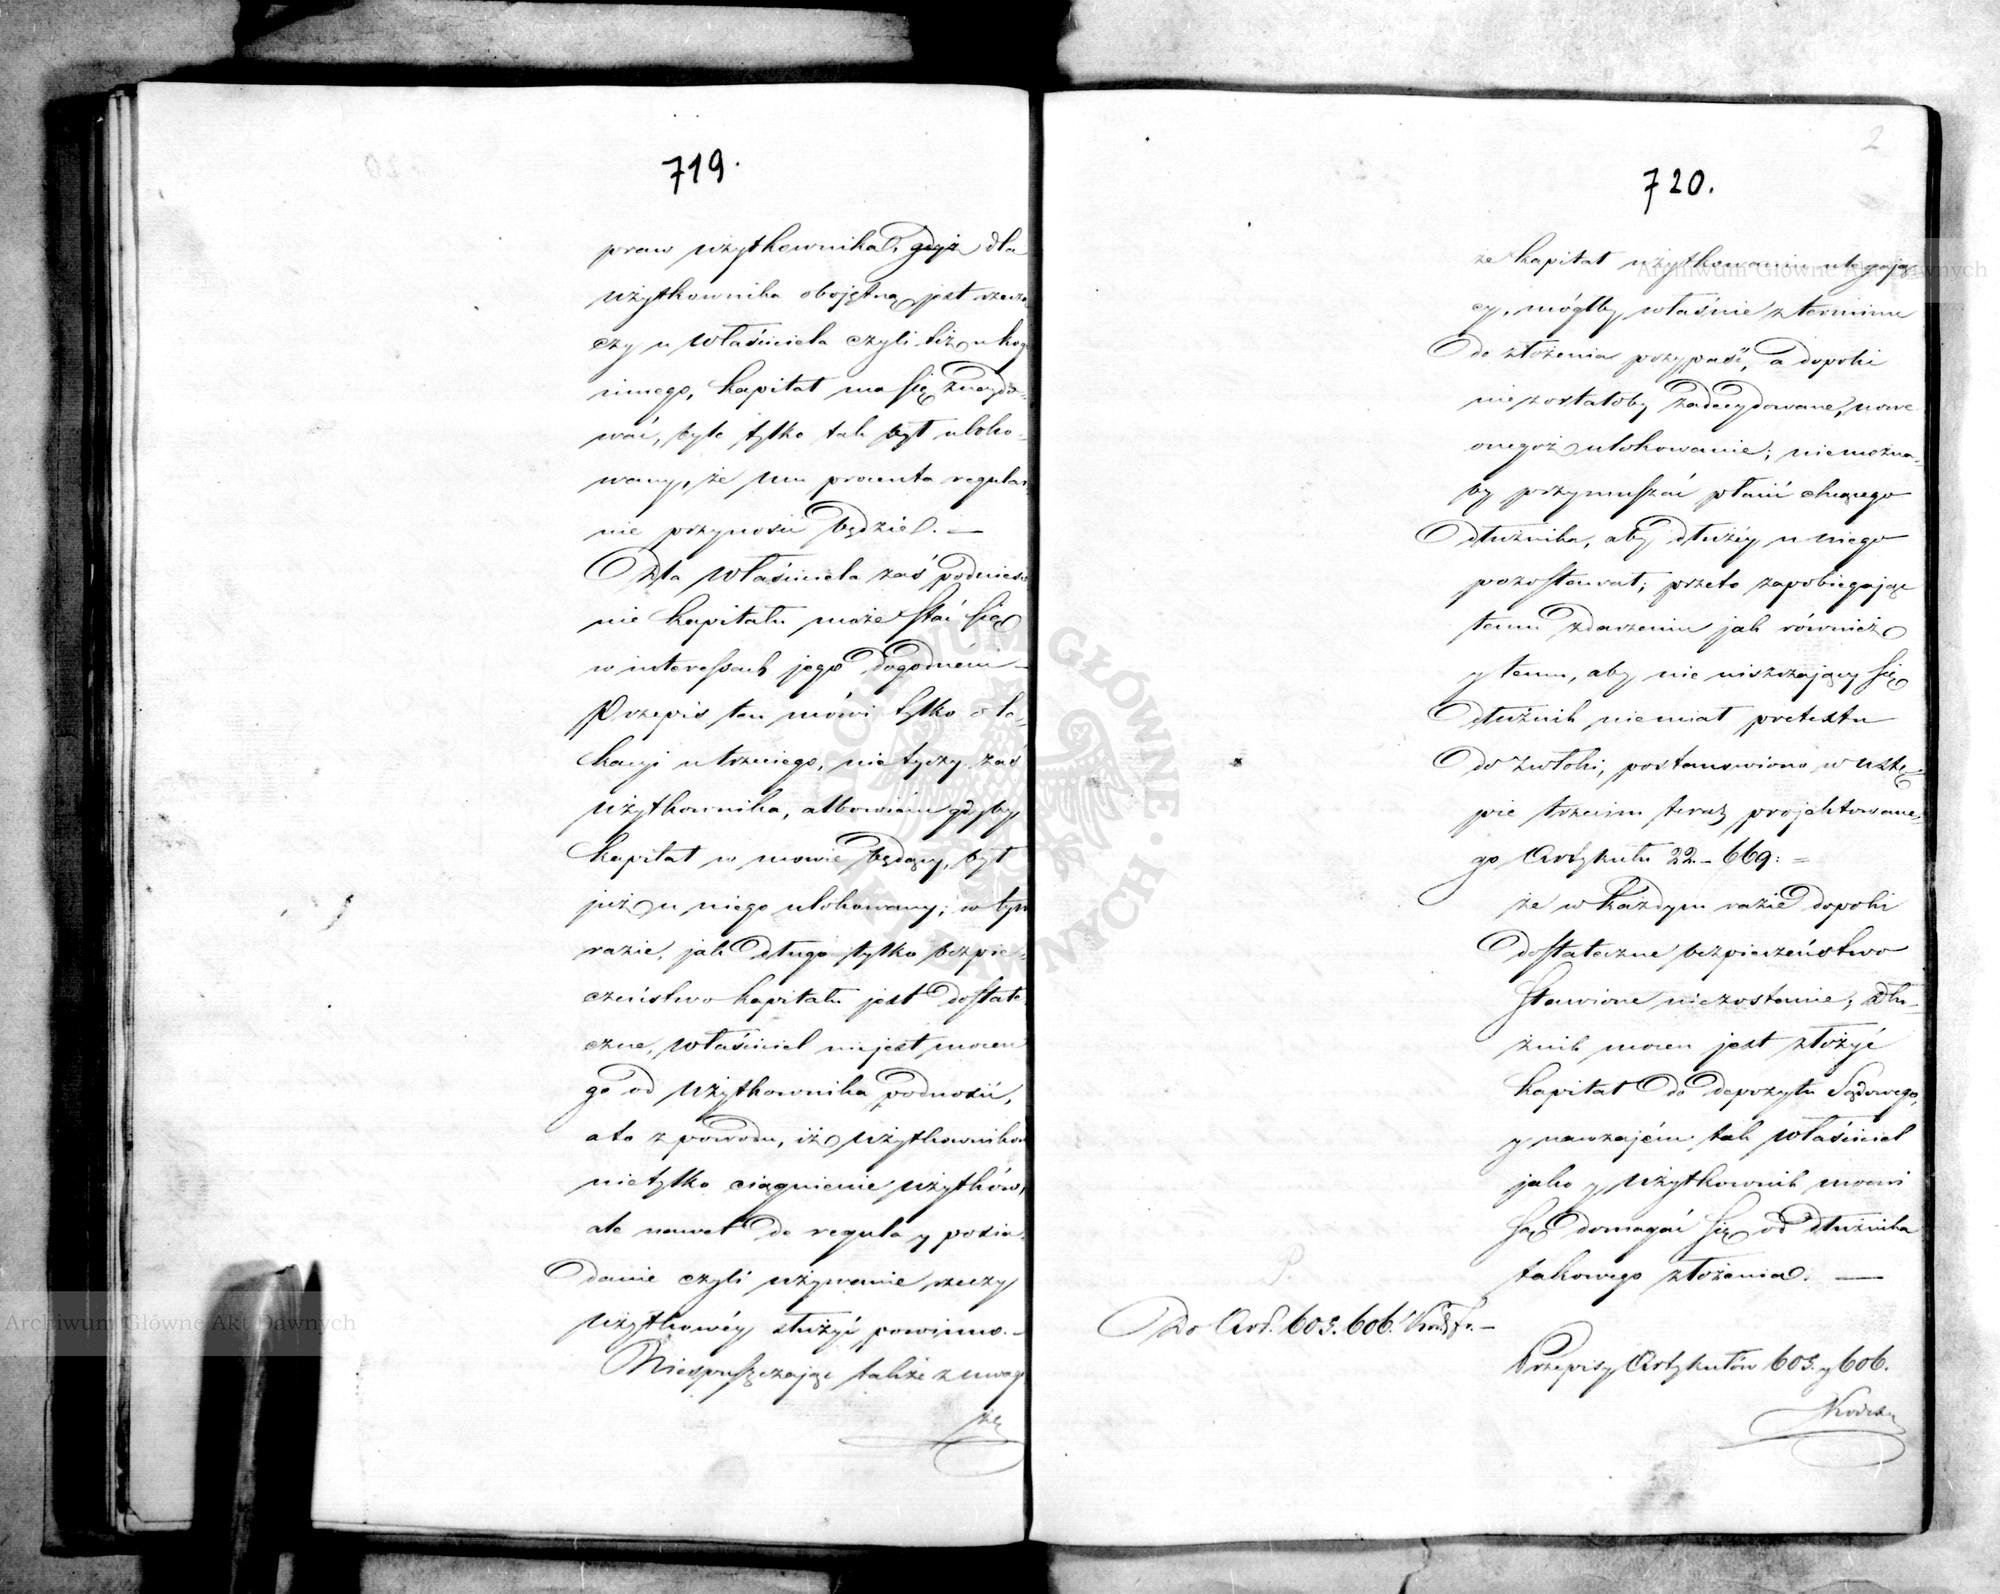 719.
praw użytkownika, gdyż dla
użytkownika obojętną jest rzeczą
czy u właściciela czyli też u kogo
innego, kapitał ma się znaydo-
wać, byle tylko tak był uloko-
wany, że mu procenta regular-
nie przynosić będzie. —
Dla właściciela zaś podniesie-
nie kapitału może stać się
w interessach jego dogodném —
Przepis ten mówi tylko o lo-
kacyi u trzeciego, nie tyczy zaś
użytkownika, albowiém gdyby
kapitał w mowie będący, był
już u niego ulokowany; w tym
razie, jak długo tylko bezpie-
czeństwo kapitału jest dostate-
czne, właściciel nie jest mocen
go od użytkownika podnosić,
a to z powodu, iż użytkownikowi
nietylko ciągnienie użytków,
ale nawet de regula y posia-
danie czyli używanie rzeczy
użytkowéy służyć powinno. —
Niespuszczając także z uwagi
że
2
720.
że kapitał użytkowaniu ulegają-
cy, mógłby właśnie z terminu
do złożenia przypaść, a dopóki
nie zostałoby zadecydowane, nowe
onegoż ulokowanie; niemożna-
by przymuszać płacić chcącego
dłużnika, aby dłużéy u niego
pozostawał; przeto zapobiegając
temu zdarzeniu jak również
y temu, aby nie uiszczający się
dłużnik niemiał pretextu
do zwłoki, postanowiono w ustę-
pie trzecim teraz projektowane-
go Artykułu 22 – 669: =
że w każdym razie dopóki
dostateczne bezpieczeństwo
stawione niezostanie, dłu-
żnik mocen jest złożyć
kapitał do depozytu Sądowego,
y nawzajém tak właściciel
jako y użytkownik mocni
są domagać się od dłużnika
takowego złożenia. —
Do Art. 605. 606. Kod. fr. —
Przepisy Artykułów 605. y 606.
Kodexu
Archiwum Główne Akt Dawnych
Archiwum Główne Akt Dawnych